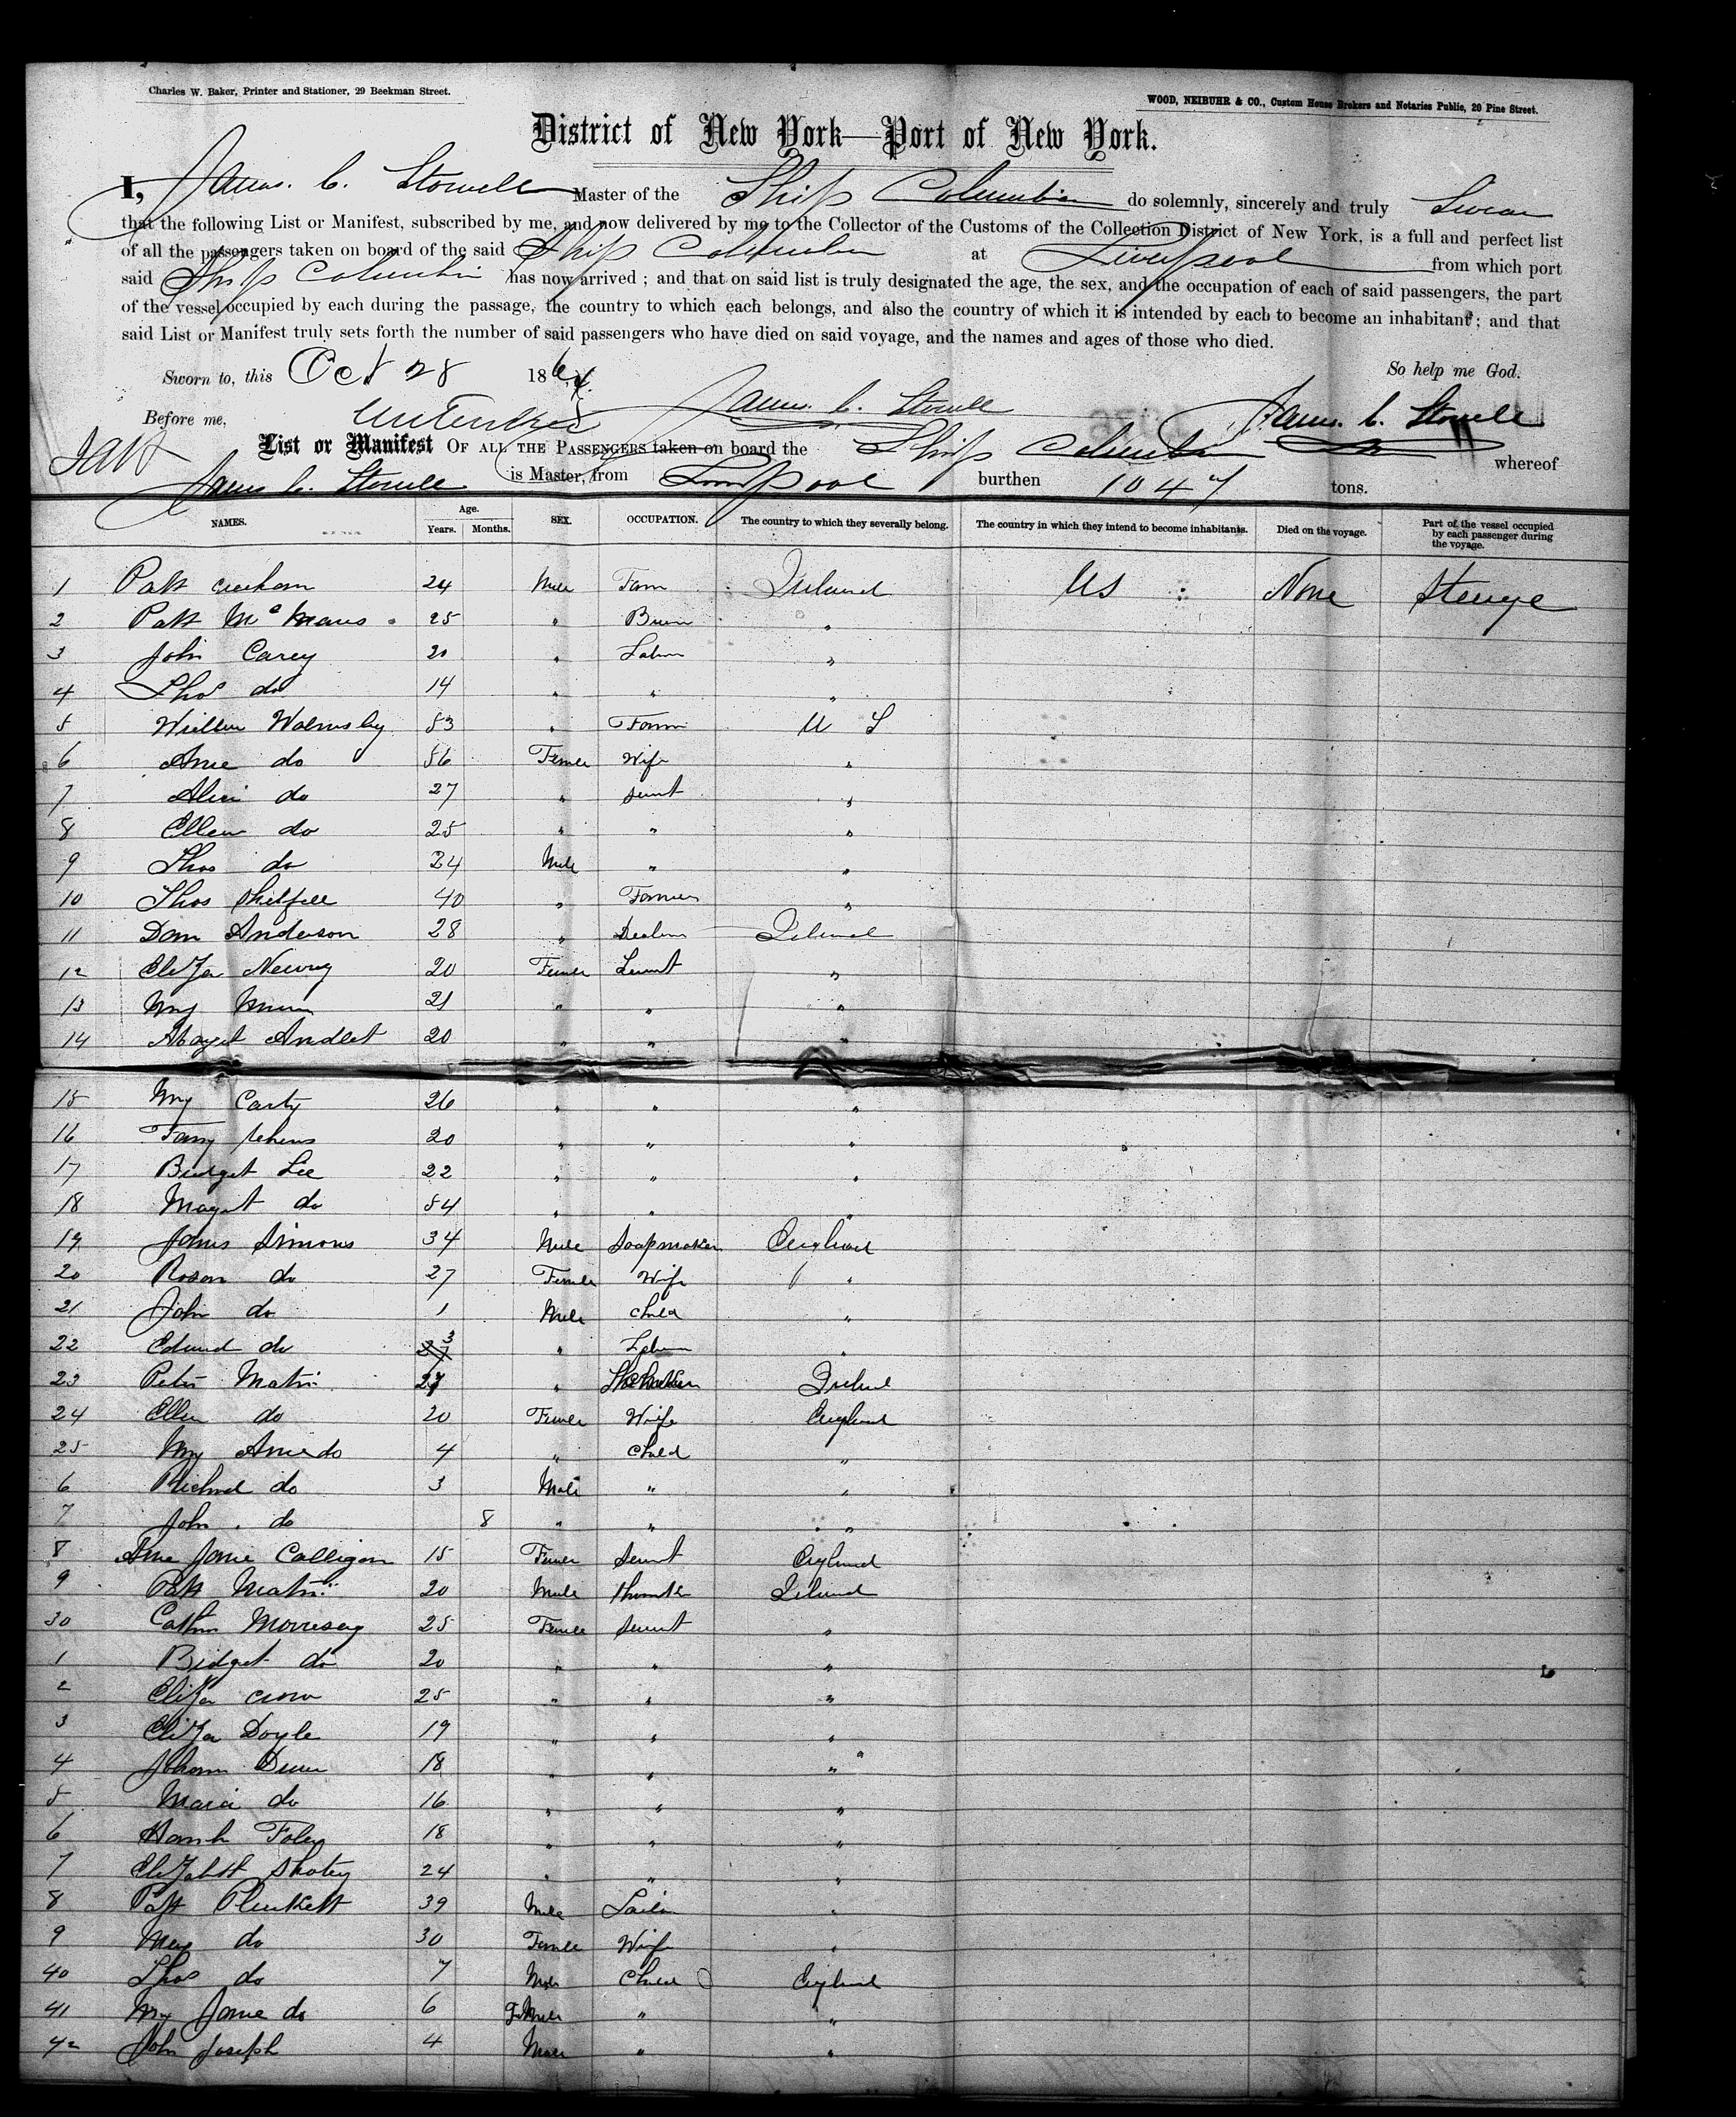 Charles W. Baker, Printer and Stationer, 29 Beekman Street.
WOOD, NEIBUHR & CO., Custom House Brokers and Notaries Public, 20 Pine Street.
District of New York—Port of New York.
I, James. C. Stowell Master of the Ship Columbia do solemnly, sincerely and truly Swear
that the following List or Manifest, subscribed by me, and now delivered by me to the Collector of the Customs of the Collection District of New York, is a full and perfect list
of all the passengers taken on board of the said Ship Columbia at Liverpool from which port
said Ship Columbia has now arrived ; and that on said list is truly designated the age, the sex, and the occupation of each of said passengers, the part
of the vessel occupied by each during the passage, the country to which each belongs, and also the country of which it is intended by each to become an inhabitant ; and that
said List or Manifest truly sets forth the number of said passengers who have died on said voyage, and the names and ages of those who died.
Sworn to, this Oct 28 186 So help me God.
Before me, James. C. Stowell James. C. Stowell
List or Manifest OF ALL THE PASSENGERS taken on board the Ship Columbia whereof
James C. Stowell is Master, from Liverpool burthen 1047 tons.
NAMES. Age. Years. Months. SEX. OCCUPATION. The country to which they severally belong. The country in which they intend to become inhabitants. Died on the voyage. Part of the vessel occupied by each passenger during the voyage.
1 Patk 24 Male Farm Ireland US None Steerage
2 Patk McManus 25 " "
3 John Carey 20 " Labor "
4 Thos do 14 " " "
5 William Walmsley 53 " Farm U S
6 Ane do 56 Female Wife "
7 Alice do 27 " Servt "
8 Ellen do 25 " " "
9 Thos do 24 Male " "
10 Thos 40 " Farmer "
11 Dan Anderson 28 " Ireland
12 Eliza 20 Female Servt "
13 My 21 " " "
14 20 " " "
15 My Carty 26 " " "
16 Fany 20 " " "
17 Bridget Lee 22 " " "
18 Magt do 54 " " "
19 James Simons 34 Male Soapmaker England
20 Rosan do 27 Female Wife "
21 John do 1 Male Child "
22 Edmund do 3 " "
23 Peter 27 " Ireland
24 Ellen do 20 Female Wife England
25 My Ane do 4 " Child "
6 Richard do 3 Male " "
7 John do 8 " " "
8 Ane Jane Calligan 15 Female Servt England
9 Patk 20 Male Ireland
30 Cathn Morrisey 25 Female Servt "
1 Bridget do 20 " " "
2 Eliza Crow 25 " " "
3 Eliza Doyle 19 " " "
4 Johann 18 " " "
5 Maria do 16 " " "
6 Hanah Foley 18 " " "
7 Elizabth 24 " " "
8 Patk Plunkett 39 Male "
9 Mary do 30 Female Wife "
40 Thos do 7 Male Child England
41 My Jane do 6 Female " "
42 John Joseph 4 Male " "